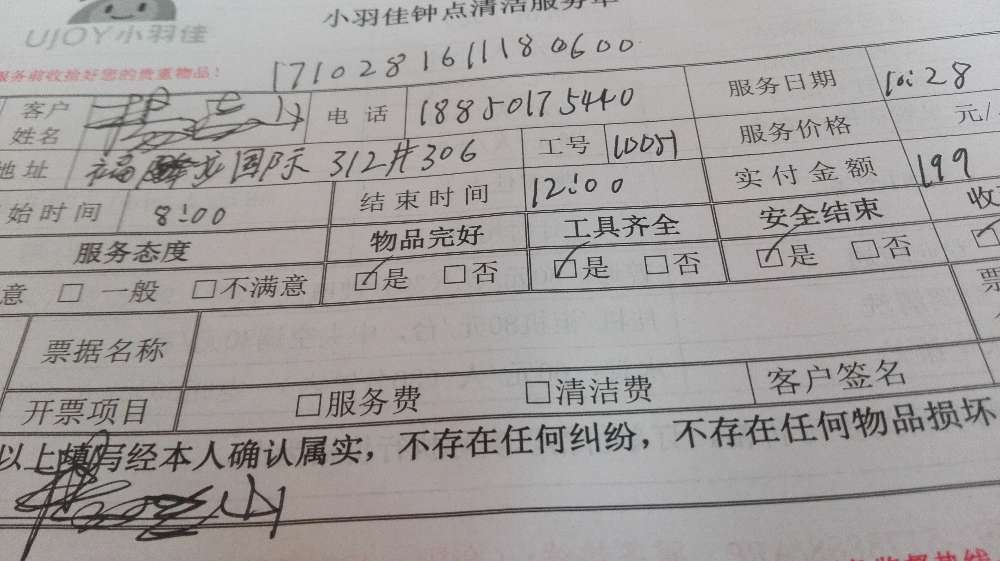 UJOY小羽佳
小羽佳钟点清洁服务单
服务前收拾好您的贵重物品!
1710281611180600
客户姓名 电话 18850175440 服务日期 10:28
地址 国际 312#306 工号 服务价格 元/
始时间 8:00 结束时间 12:00 实付金额 199
服务态度 物品完好 工具齐全 安全结束 收
意 □ 一般 □不满意 ☑是 □否 ☑是 □否 ☑是 □否
票据名称 票
开票项目 □服务费 □清洁费 客户签名
以上填写经本人确认属实，不存在任何纠纷，不存在任何物品损坏